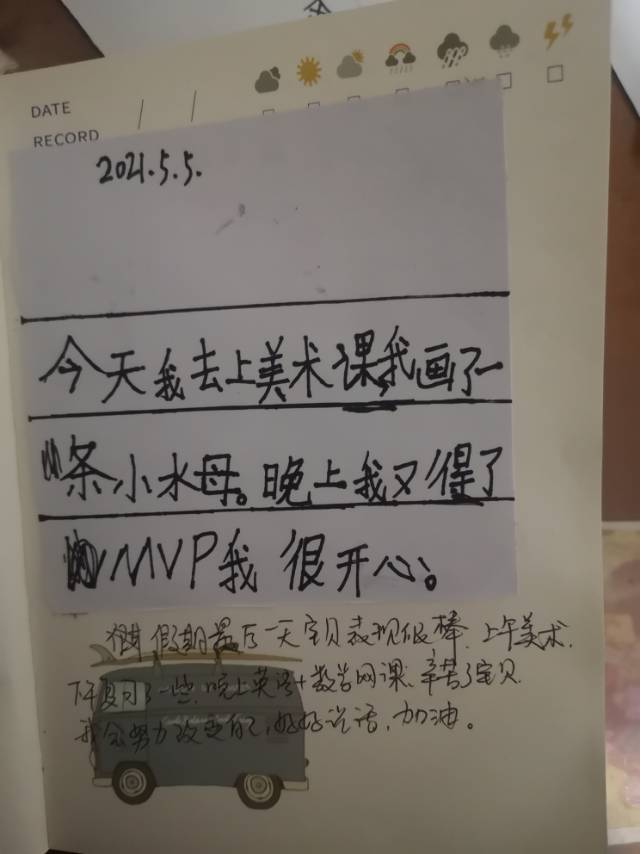 DATE / /
RECORD
2021.5.5.
今天我去上美术课我画了一
条小水母。晚上我又得了
MVP我很开心。
假期最后一天宝贝表现很棒.上午美术.
下午复习了一些.晚上英语+数学网课.辛苦了宝贝.
我会努力改变自己,好好说话,加油。